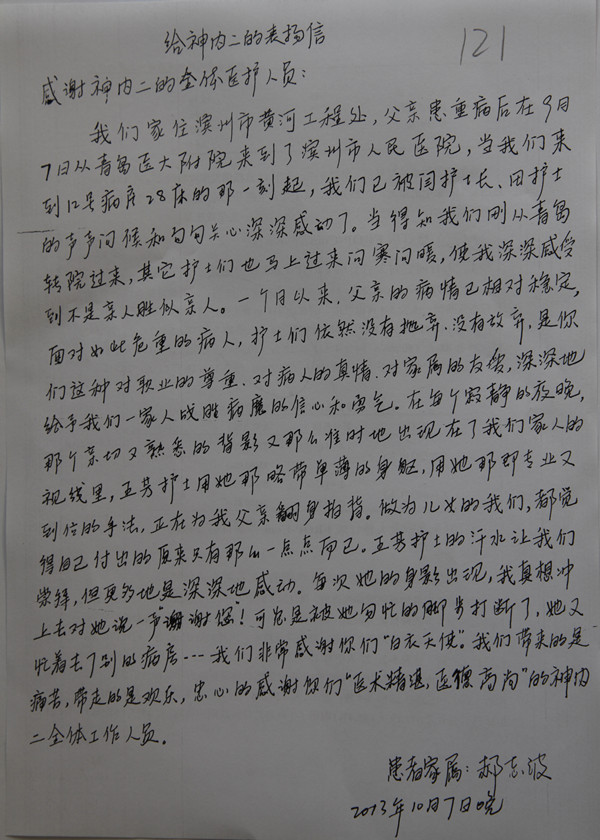 给神内二的表扬信
121
感谢神内二的全体医护人员：
我们家住滨州市黄河工程处，父亲患重病后在9月
7日从青岛医大附院来到了滨州市人民医院，当我们来
到12号病房28床的那一刻起，我们已被闫护士长、田护士
的声声问候和句句关心深深感动了。当得知我们刚从青岛
转院过来，其它护士们也马上过来问寒问暖，使我深深感受
到不是亲人胜似亲人。一个月以来，父亲的病情已相对稳定，
面对如此危重的病人，护士们依然没有抛弃、没有放弃，是你
们这种对职业的尊重、对病人的真情、对家属的友爱，深深地
给予我们一家人战胜病魔的信心和勇气。在每个寂静的夜晚，
那个亲切又熟悉的背影又那么准时地出现在了我们家人的
视线里，王芳护士用她那略带单薄的身躯，用她那即专业又
到位的手法，正在为我父亲翻身拍背。做为儿女的我们，都觉
得自己付出的原来只有那么一点点而已。王芳护士的汗水让我们
崇拜，但更多地是深深地感动。每次她的身影出现，我真想冲
上去对她说一声"谢谢您！可总是被她匆忙的脚步打断了，她又
忙着去了别的病房---我们非常感谢你们"白衣天使"。我们带来的是
痛苦，带走的是欢乐，忠心的感谢你们"医术精湛，医德高尚"的神内
二全体工作人员。
患者家属：郝志波
2013年10月7日晚